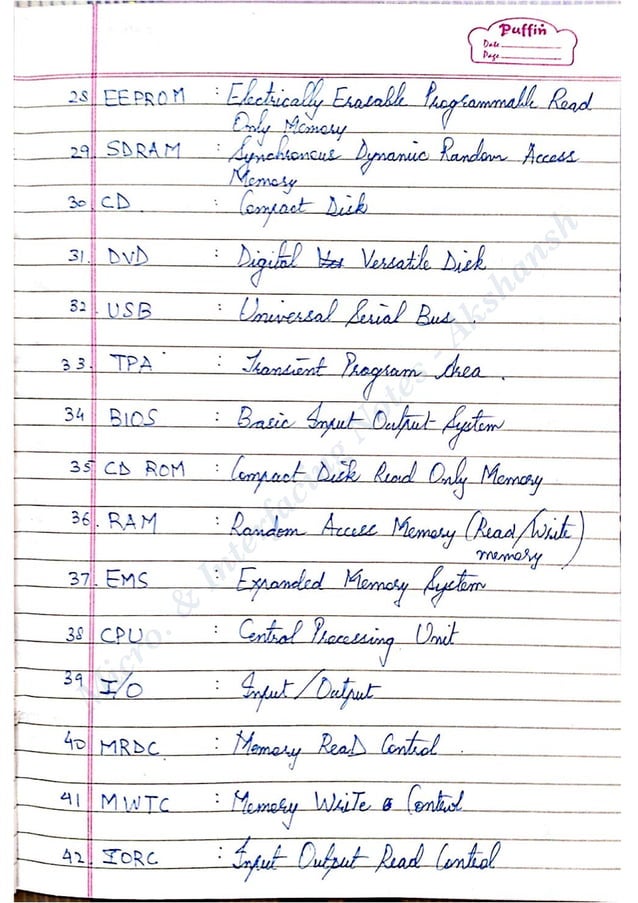 Puffin
Date
Page
28 EEPROM : Electrically Erasable Programmable Read
Only Memory
29. SDRAM : Synchronous Dynamic Random Access
Memory
30. CD : Compact Disk
31. DVD : Digital Versatile Disk
32. USB : Universal Serial Bus.
33. TPA : Transient Program Area.
34 BIOS : Basic Input Output System
35 CD ROM : Compact Disk Read Only Memory
36. RAM : Random Access Memory (Read/Write
memory)
37. EMS : Expanded Memory System
38 CPU : Central Processing Unit
39 I/O : Input/Output
40 MRDC : Memory ReaD Control.
41 MWTC : Memory WriTe Control
42. IORC : Input Output Read Control
Micro. & Interfacing Notes - Akshansh